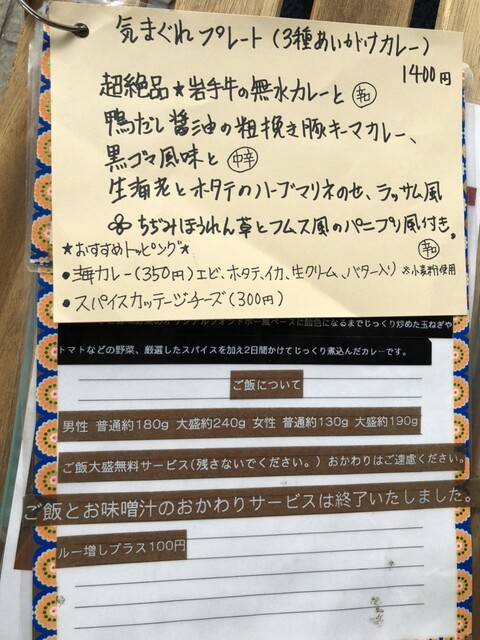 気まぐれプレート(3種あいがけカレー)
1400円
超絶品★岩手牛の無水カレーと 辛口
鴨だし醤油の粗挽き豚キーマカレー、
黒ゴマ風味と 中辛
生海老とホタテのハーブマリネのせ、ラッサム風
ちぢみほうれん草とフムス風のパニプリ風付き。
辛口
★おすすめトッピング★
・海カレー(350円)エビ、ホタテ、イカ、生クリーム、バター入り ※小麦粉使用
・スパイスカッテージチーズ(300円)
ベースに飴色になるまでじっくり炒めた玉ねぎや
トマトなどの野菜、厳選したスパイスを加え2日間かけてじっくり煮込んだカレーです。
ご飯について
男性 普通約180g 大盛約240g 女性 普通約130g 大盛約190g
ご飯大盛無料サービス(残さないでください。)おかわりはご遠慮ください。
ご飯とお味噌汁のおかわりサービスは終了いたしました。
ルー増しプラス100円